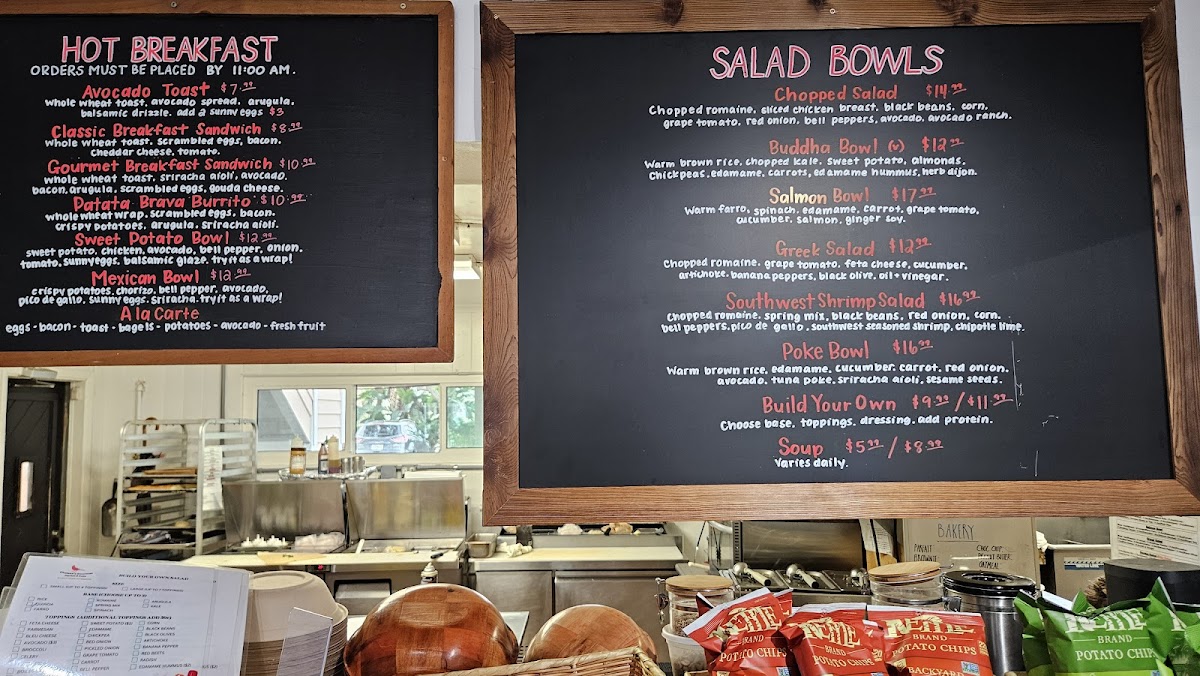 HOT BREAKFAST
ORDERS MUST BE PLACED BY 11:00 AM.
Avocado Toast $7.99
whole wheat toast, avocado spread, arugula,
balsamic drizzle. add 2 sunny eggs $3
Classic Breakfast Sandwich $8.99
whole wheat toast, scrambled eggs, bacon,
cheddar cheese, tomato.
Gourmet Breakfast Sandwich $10.99
whole wheat toast, sriracha aioli, avocado,
bacon, arugula, scrambled eggs, gouda cheese.
Patata Brava Burrito $10.99
whole wheat wrap, scrambled eggs, bacon,
crispy potatoes, arugula, sriracha aioli.
Sweet Potato Bowl $12.99
sweet potato, chicken, avocado, bell pepper, onion,
tomato, sunny eggs, balsamic glaze. try it as a wrap!
Mexican Bowl $12.99
crispy potatoes, chorizo, bell pepper, avocado,
pico de gallo, sunny eggs, sriracha. try it as a wrap!
A la Carte
eggs - bacon - toast - bagels - potatoes - avocado - fresh fruit
SALAD BOWLS
Chopped Salad $14.99
Chopped romaine, sliced chicken breast, black beans, corn,
grape tomato, red onion, bell peppers, avocado, avocado ranch.
Buddha Bowl (v) $12.99
Warm brown rice, chopped kale, sweet potato, almonds,
Chickpeas, edamame, carrots, edamame hummus, herb dijon.
Salmon Bowl $17.99
Warm farro, spinach, edamame, carrot, grape tomato,
cucumber, salmon, ginger soy.
Greek Salad $12.99
Chopped romaine, grape tomato, feta cheese, cucumber,
artichoke, banana peppers, black olive, oil + vinegar.
Southwest Shrimp Salad $16.99
Chopped romaine, spring mix, black beans, red onion, corn,
bell peppers, pico de gallo, southwest seasoned shrimp, chipotle lime.
Poke Bowl $16.99
Warm brown rice, edamame, cucumber, carrot, red onion,
avocado, tuna poke, sriracha aioli, sesame seeds.
Build Your Own $9.99 / $11.99
Choose base, toppings, dressing, add protein.
Soup $5.99 / $8.99
Varies daily.
BAKERY
PARFAIT
BROWNIE
CHOC CHIP
PEANUT BUTTER
OATMEAL
BUILD YOUR OWN SALAD
SIZE
BASE (CHOOSE UP TO 2)
RICE
QUINOA
FARRO
ROMAINE
SPRING MIX
SPINACH
ARUGULA
KALE
FETA CHEESE
PARMESAN
BLEU CHEESE
BROCCOLI
CELERY
EDAMAME
CHICKPEA
PICKLED ONION
RED ONION
GRAPE TOMATO
CARROT
BELL PEPPER
CORN
BLACK BEANS
BLACK OLIVES
ARTICHOKE
BANANA PEPPER
RED BEETS
RADISH
KETTLE
BRAND
POTATO CHIPS
KETTLE
BRAND
POTATO CHIPS
KETTLE
BRAND
POTATO CHIPS
BACKYARD
KETTLE
BRAND
POTATO CHIPS